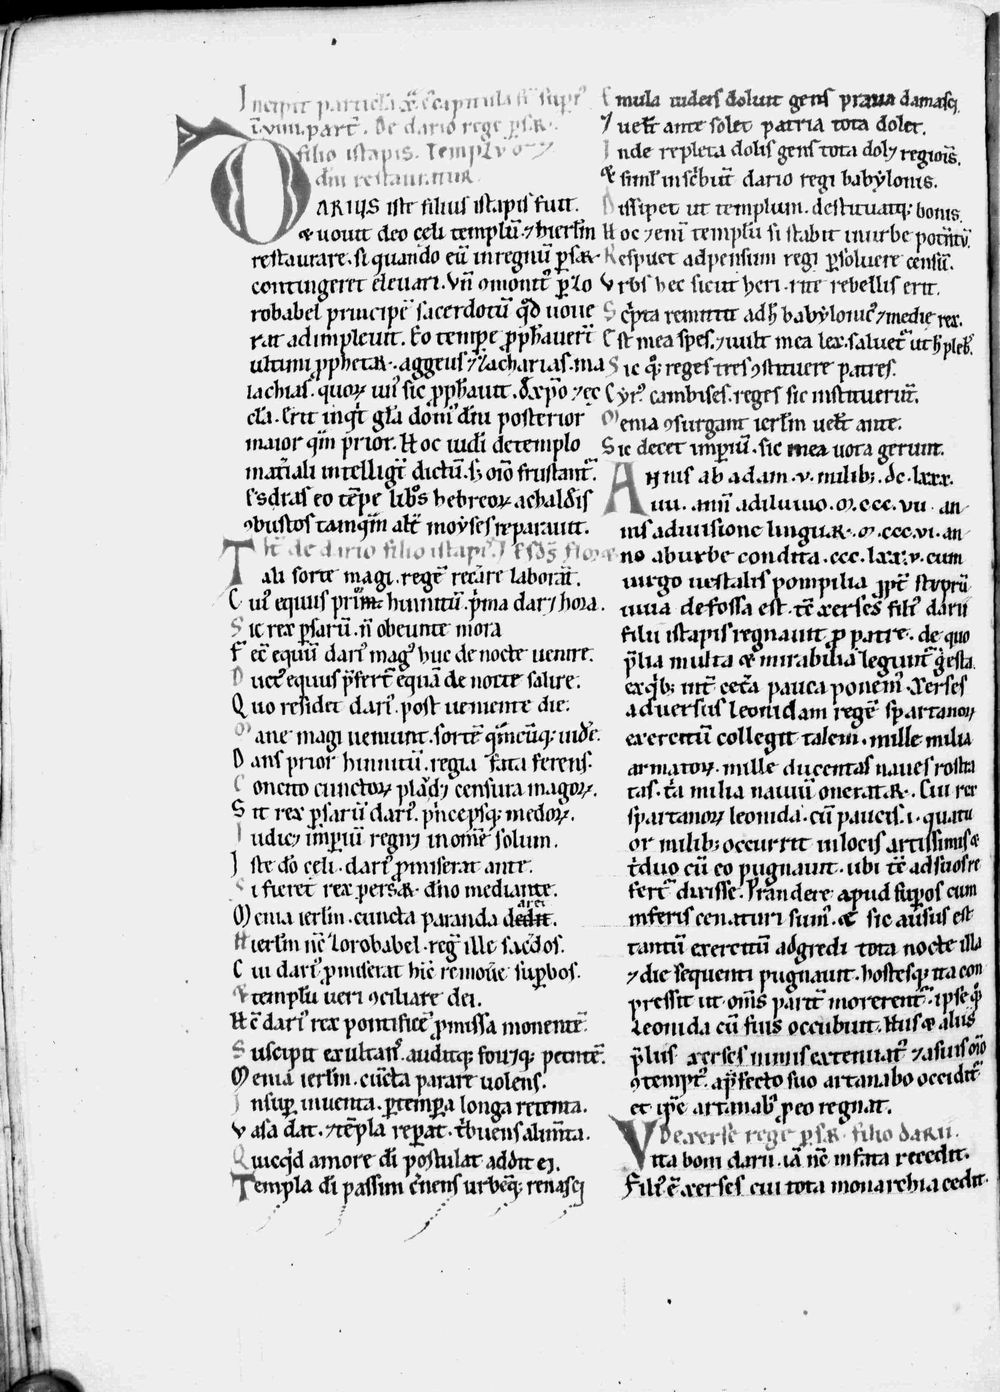 Incipit particła
viiii. part̄. De dario rege ꝑsaꝝ.
filio istapis. Templū
dn̄i restauratur
DARIUS iste filius istapis fuit.
⁊ vouit deo cęli templū. ⁊ hierlm̄
restaurare. si quando eū in regnū ꝑsaꝝ
contingeret eleuari. Vn̄ ꝯmonitꝰ ꝑ zo
robabel principē sacerdotū qd̄ uoue
rat adimpleuit. Eo tempe ꝓphauerūt
ultimi ꝓphetaꝝ. aggeus ⁊ zacharias. ma
lachias. quoꝝ unꝰ sic ꝓphauit. de xp̄o ⁊ ec
cła. Erit inqͥt gła domꝰ dn̄i posterior
maior qͣm prior. Hoc iudei de templo
mat̄iali intelligūt dictū. sꝫ om̄o frustrant̄.
Esdras eo tēpe libros hebreoꝝ a chaldeis
ꝯbustos tamqͣm alt̄ moyses reparauit.
It̄ de dario filio istapis
Tali sorte magi. regē recͣre laborāt.
Cuiꝰ equus primū hinnitū. pͥma darꝫ hora.
Sic rex ꝑsarū. n̄ obeunte mora
Fec̄ equū dariꝰ magꝰ huc de nocte uenire.
Ductꝰ equus p̄fert̄ equā de nocte salire.
Quo residet dariꝰ. post ueniente die.
Mane magi ueniunt. sortē qͣmcūqꝫ uidēt.
Dans prior hinnitū. regia fata ferens.
Concito cunctoꝝ placꝫ censura magoꝝ.
Sit rex ꝑsarū dariꝰ. pͥncepsqꝫ medoꝝ.
Iudicꝫ imꝑiū regnꝫ in om̄e solum.
Iste dō cęli. dariꝰ ꝓmiserat ante.
Si fieret rex persaꝝ. dn̄o mediante.
Menia ierlm̄. cuncta paranda dedit. arei
Hierlm̄ nc̄ zorobabel. regͣt ille sacꝺos.
Cui dariꝰ ꝓmiserat hic remouē suꝑbos.
⁊ templū ueri ꝯciliare dei.
Hec dariꝰ rex pontificē ꝓmissa monentē.
Suscipit exultans. auditqꝫ fouꝫqꝫ petentē.
Menia ierlm̄. cūcta parare uolens.
Insuꝑ inuenta. ꝑ tempora longa retenta.
Vasa dat. ⁊ tēpla reꝑat. tͥbuens alimēta.
Quicqͥd amore dī postulat addit ei.
Templa dī passim cͦnens urbēqꝫ renasci
Emula iudeis doluit gens praua damasci
⁊ uelut ante solet patria tota dolet.
Inde repleta dolis gens tota dolꝫ regiōis.
⁊ simł inscͥbunt dario regi babylonis.
Dissipet ut templum. destituatqꝫ bonis.
Hoc etenī templū si stabit in urbe potentū.
Respuet adpensum regi ꝑsoluere censū.
Vrbs hec sicut heri. rite rebellis erit.
Scͥpta remittit ad hęc babyloniꝰ ⁊ medię rex.
Est mea spes. ⁊ uult mea lex. saluetͬ ut hꝫ plebs.
Sic qͦꝫ reges tres ꝯstituere patres.
Cyrꝰ cambises. reges sic instituerūt.
Menia ꝯsurgant ierlm̄ uelut ante.
Sic decet imꝑiū. sic mea uota gerunt.
Annus ab adam .v. milibꝫ. dc. lxxx.
uii. anni a diluuio .m.ccc.vii. an
nis a diuisione linguaꝝ .m.ccc.vi. an
no ab urbe condita .ccc.lxx.v. cum
uirgo uestalis pompilia ꝓpt̄ stuprū
uiua defossa est. tc̄ xerses filiꝰ darii
filii istapis regnauit ꝓ patre. de quo
p̄lia multa ⁊ mirabilia legunt̄ gesta.
ex qͥbꝫ int̄ cet̄a pauca ponemꝰ. Xerses
aduersus leonidam regē spartanoꝝ
exercitū collegit talem. mille milia
armatoꝝ. mille ducentas naues rostra
tas. tͥa milia nauiū onerataꝝ. Cui rex
spartanoꝝ leonida. cū paucis. i. quatu
or milibꝫ occurrit in locis artissimis ⁊
tͥduo cū eo pugnauit. ubi tc̄ ad suos re
fert̄ dixisse. Prandere apud suꝑos cum
inferis cenaturi sumꝰ. ⁊ sic ausus est
tantū exercitū adgredi tota nocte illa
⁊ die sequenti pugnauit. hostesqꝫ ita con
pressit ut om̄s partī morerentͬ. ipse qͦꝫ
leonida cū suis occubuit. His ⁊ aliis
p̄liis xerses nimis extenuatꝰ ⁊ a suis om̄o
ꝯtemptꝰ. a p̄fecto suo artanabo occidit̄
et ip̄e artanabꝰ ꝓ eo regnat.
De xerse rege ꝑsaꝝ. filio darii.
Vita boni darii. iā nc̄ in fata recedit.
Filiꝰ ē xerses cui tota monarchia cedit.